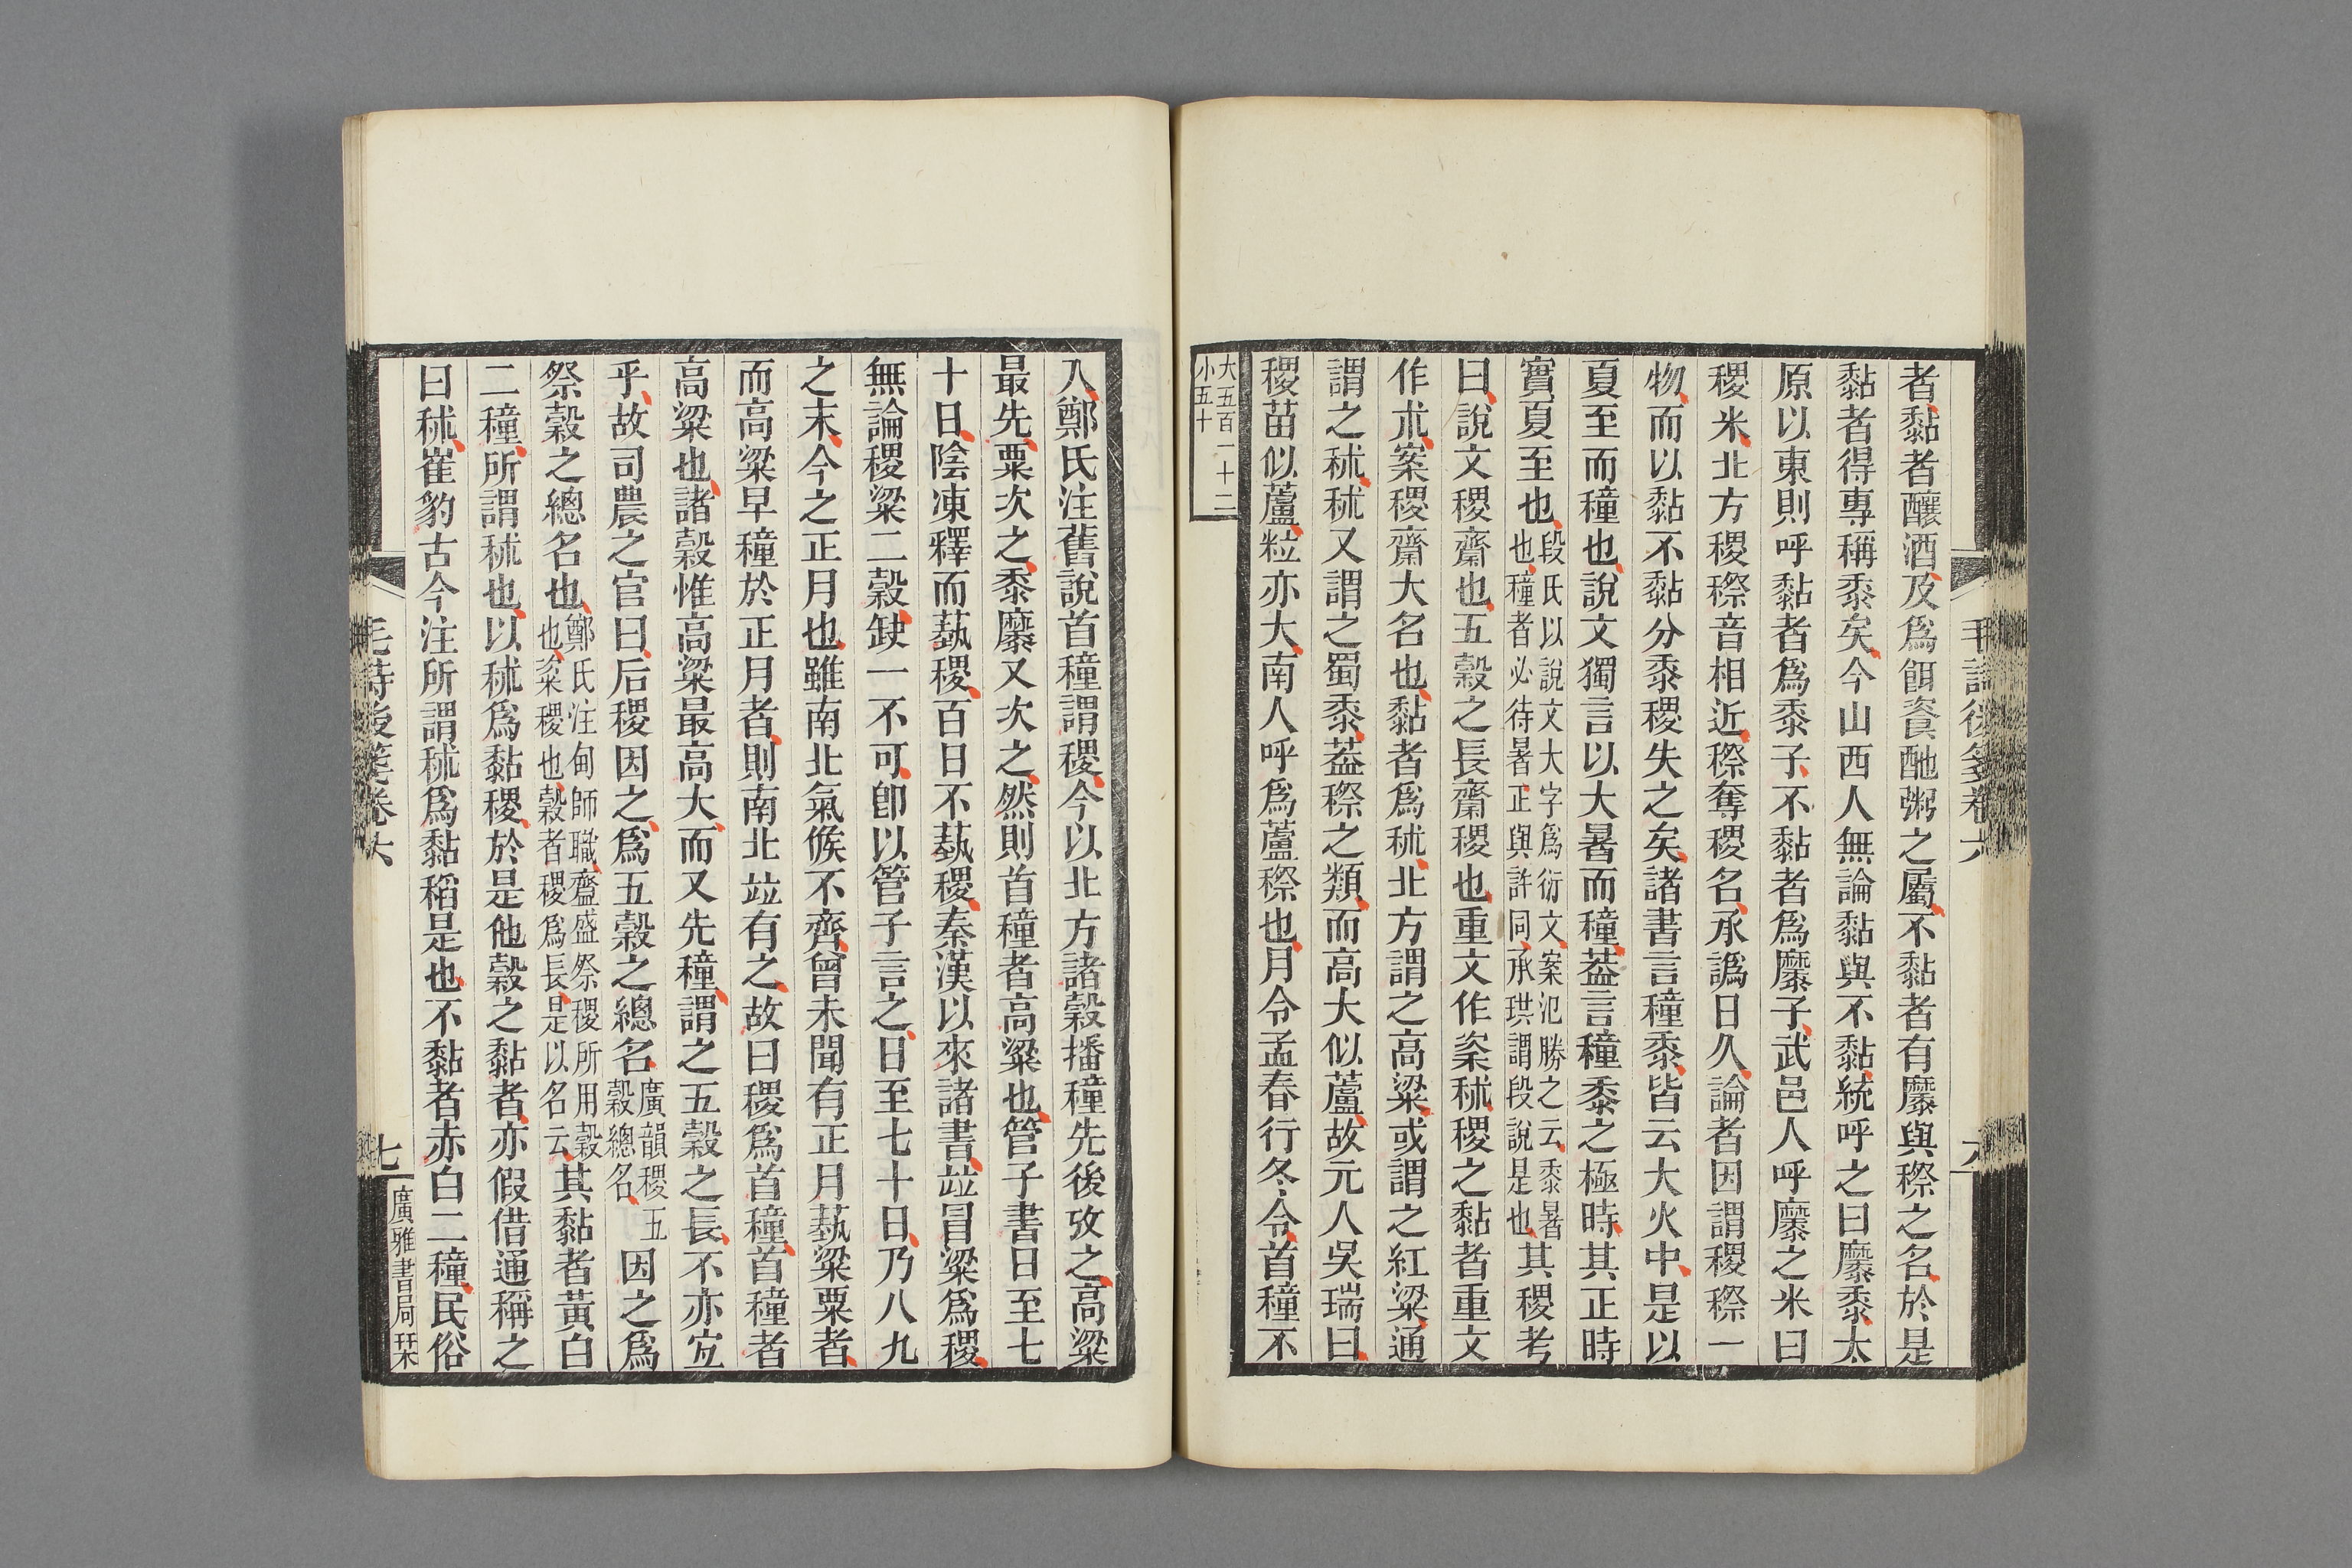 毛詩後箋卷六
六
者黏者釀酒及爲餌餈酏粥之屬不黏者有䵚與穄之名於是
黏者得專稱黍矣今山西人無論黏與不黏統呼之曰䵚黍太
原以東則呼黏者爲黍子不黏者爲䵚子武邑人呼䵚之米曰
稷米北方稷穄音相近穄奪稷名承譌日久論者因謂稷穄一
物而以黏不黏分黍稷失之矣諸書言穜黍皆云大火中是以
夏至而穜也說文獨言以大暑而穜葢言穜黍之極時其正時
實夏至也段氏以說文大字爲衍文案氾勝之云黍暑
也穜者必待暑正與許同承珙謂段說是也其稷考
曰說文稷齋也五穀之長齋稷也重文作粢秫稷之黏者重文
作朮案稷齋大名也黏者爲秫北方謂之高粱或謂之紅粱通
謂之秫秫又謂之蜀黍葢穄之類而高大似蘆故元人吳瑞曰
稷苗似蘆粒亦大南人呼爲蘆穄也月令孟春行冬令首穜不
大五百一十二
小五十
入鄭氏注舊說首穜謂稷今以北方諸穀播穜先後攷之高粱
最先粟次之黍䵚又次之然則首穜者高粱也管子書日至七
十日陰凍釋而蓺稷百日不蓺稷秦漢以來諸書竝冒粱爲稷
無論稷粱二穀缺一不可卽以管子言之日至七十日乃八九
之末今之正月也雖南北氣候不齊曾未聞有正月蓺粱粟者
而高粱早穜於正月者則南北竝有之故曰稷爲首穜首穜者
高粱也諸穀惟高粱最高大而又先穜謂之五穀之長不亦宜
乎故司農之官曰后稷因之爲五穀之總名廣韻稷五
穀總名因之爲
祭穀之總名也鄭氏注甸師職齍盛祭稷所用穀
也粢稷也穀者稷爲長是以名云其黏者黃白
二穜所謂秫也以秫爲黏稷於是他穀之黏者亦假借通稱之
曰秫崔豹古今注所謂秫爲黏稻是也不黏者赤白二穜民俗
毛詩後箋卷六
七
廣雅書局栞